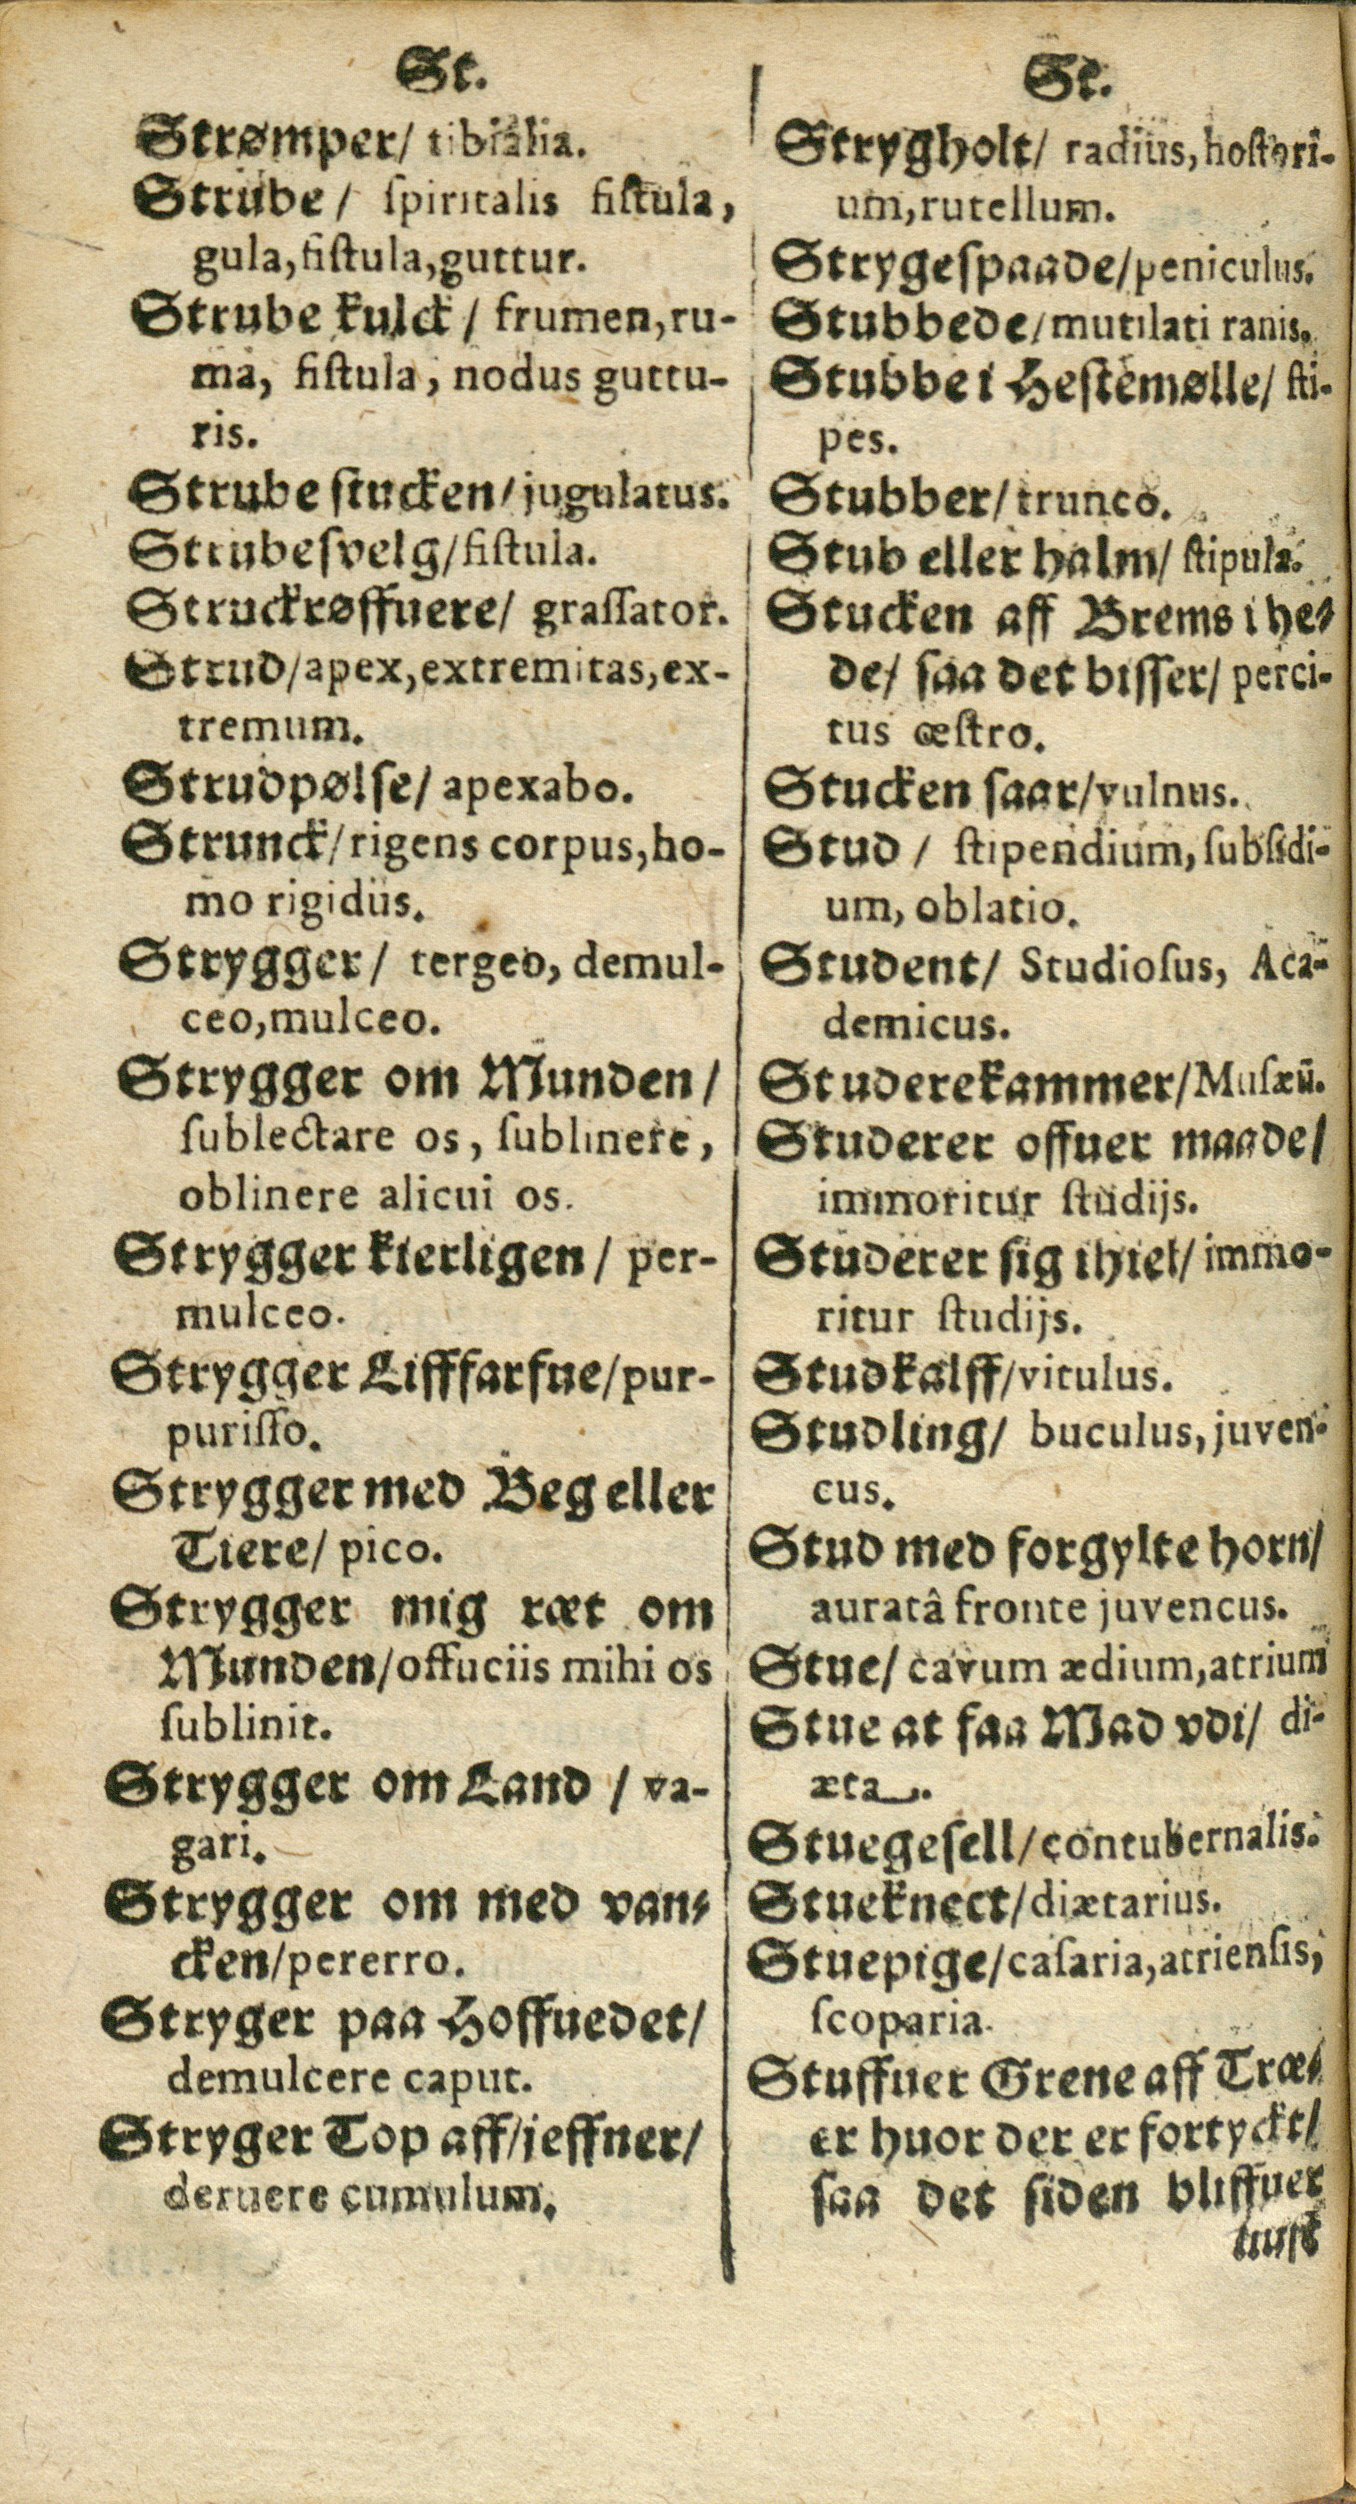 St.
Strømper/ tibialia.
Strube/ ſpiritalis fiſtula,
gula, fiſtula, guttur.
Strube kulck/ frumen, ru-
ma, fiſtula, nodus guttu-
ris.
Strube ſtucken/ jugulatus.
Strubeſvelg/ fiſtula.
Struckrøffuere/ graſſator.
Strud/ apex, extremitas, ex-
tremum.
Strudpølſe/ apexabo.
Strunck/ rigens corpus, ho-
mo rigidus.
Strygger/ tergeo, demul-
ceo, mulceo.
Strygger om Munden/
ſublectare os, ſublinere,
oblinere alicui os.
Strygger kierligen/ per-
mulceo.
Strygger Lifffarfue/ pur-
puriſſo.
Strygger med Beg eller
Tiere/ pico.
Strygger mig ræt om
Munden/ offuciis mihi os
ſublinit.
Strygger om Land/ va-
gari.
Strygger om med van-
cken/ pererro.
Stryger paa Hoffuedet/
demulcere caput.
Stryger Top aff/ jeffner/
deruere cumulum.
St.
Strygholt/ radius, hoſtori-
um, rutellum.
Strygeſpaade/ peniculus.
Stubbede/ mutilati ranis.
Stubbe i Heſtemølle/ ſti-
pes.
Stubber/ trunco.
Stub eller halm/ ſtipula.
Stucken aff Brems i he-
de/ ſaa det biſſer/ perci-
tus œſtro.
Stucken ſaar/ vulnus.
Stud/ ſtipendium, ſubſidi-
um, oblatio.
Student/ Studioſus, Aca-
demicus.
Studerekammer/ Muſæū.
Studerer offuer maade/
immoritur ſtudijs.
Studerer ſig ihiel/ immo-
ritur ſtudijs.
Studkalff/ vitulus.
Studling/ buculus, juven-
cus.
Stud med forgylte horn/
auratâ fronte juvencus.
Stue/ cavum ædium, atrium
Stue at faa Mad vdi/ di-
æta.
Stuegeſell/ contubernalis.
Stueknect/ diætarius.
Stuepige/ caſaria, atrienſis,
ſcoparia.
Stuffuer Grene aff Træ-
er huor der er fortyckt/
ſaa det ſiden bliffuer
liuſt